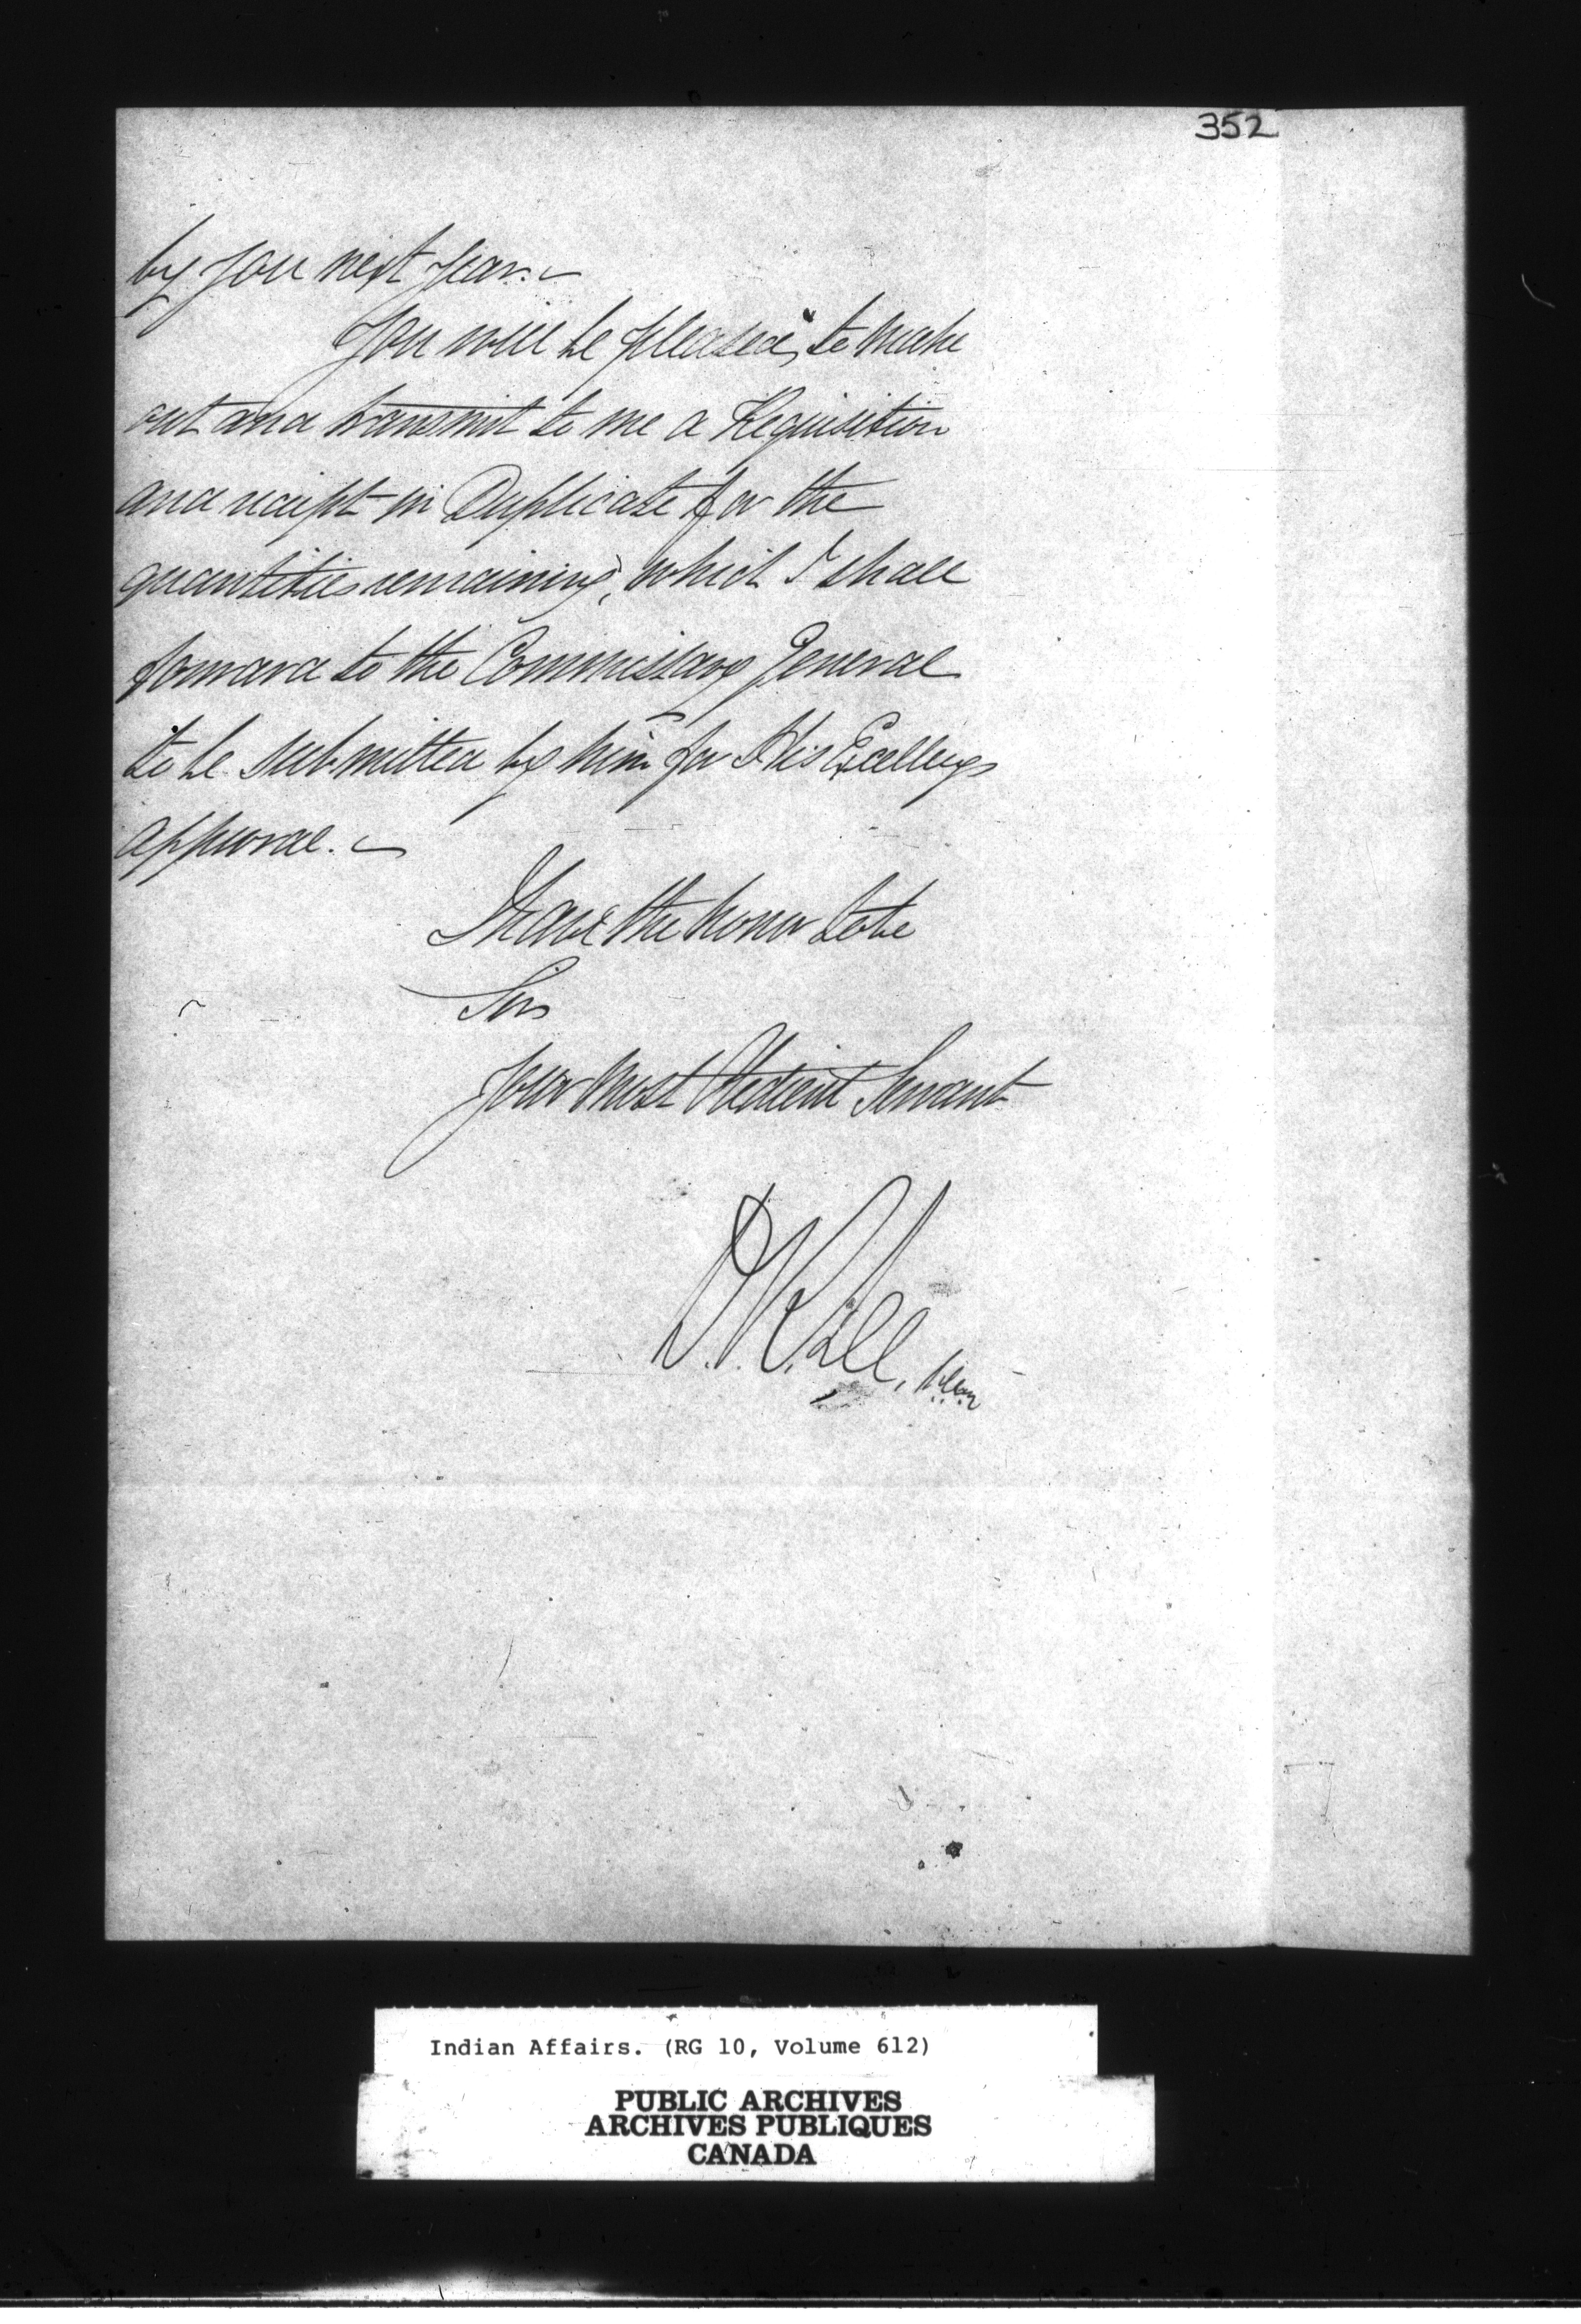 352
by you next year. –
You will be pleased, to make
out and transmit to me a Requisition
and receipt in Duplicate for the
quantities remaining, which I shall
forward to the Commissary General
to be submitted by him for His Excellency's
approval. –
I have the honor to be
Sir
Your Most Obedient Servant
Indian Affairs. (RG 10, Volume 612)
PUBLIC ARCHIVES
ARCHIVES PUBLIQUES
CANADA